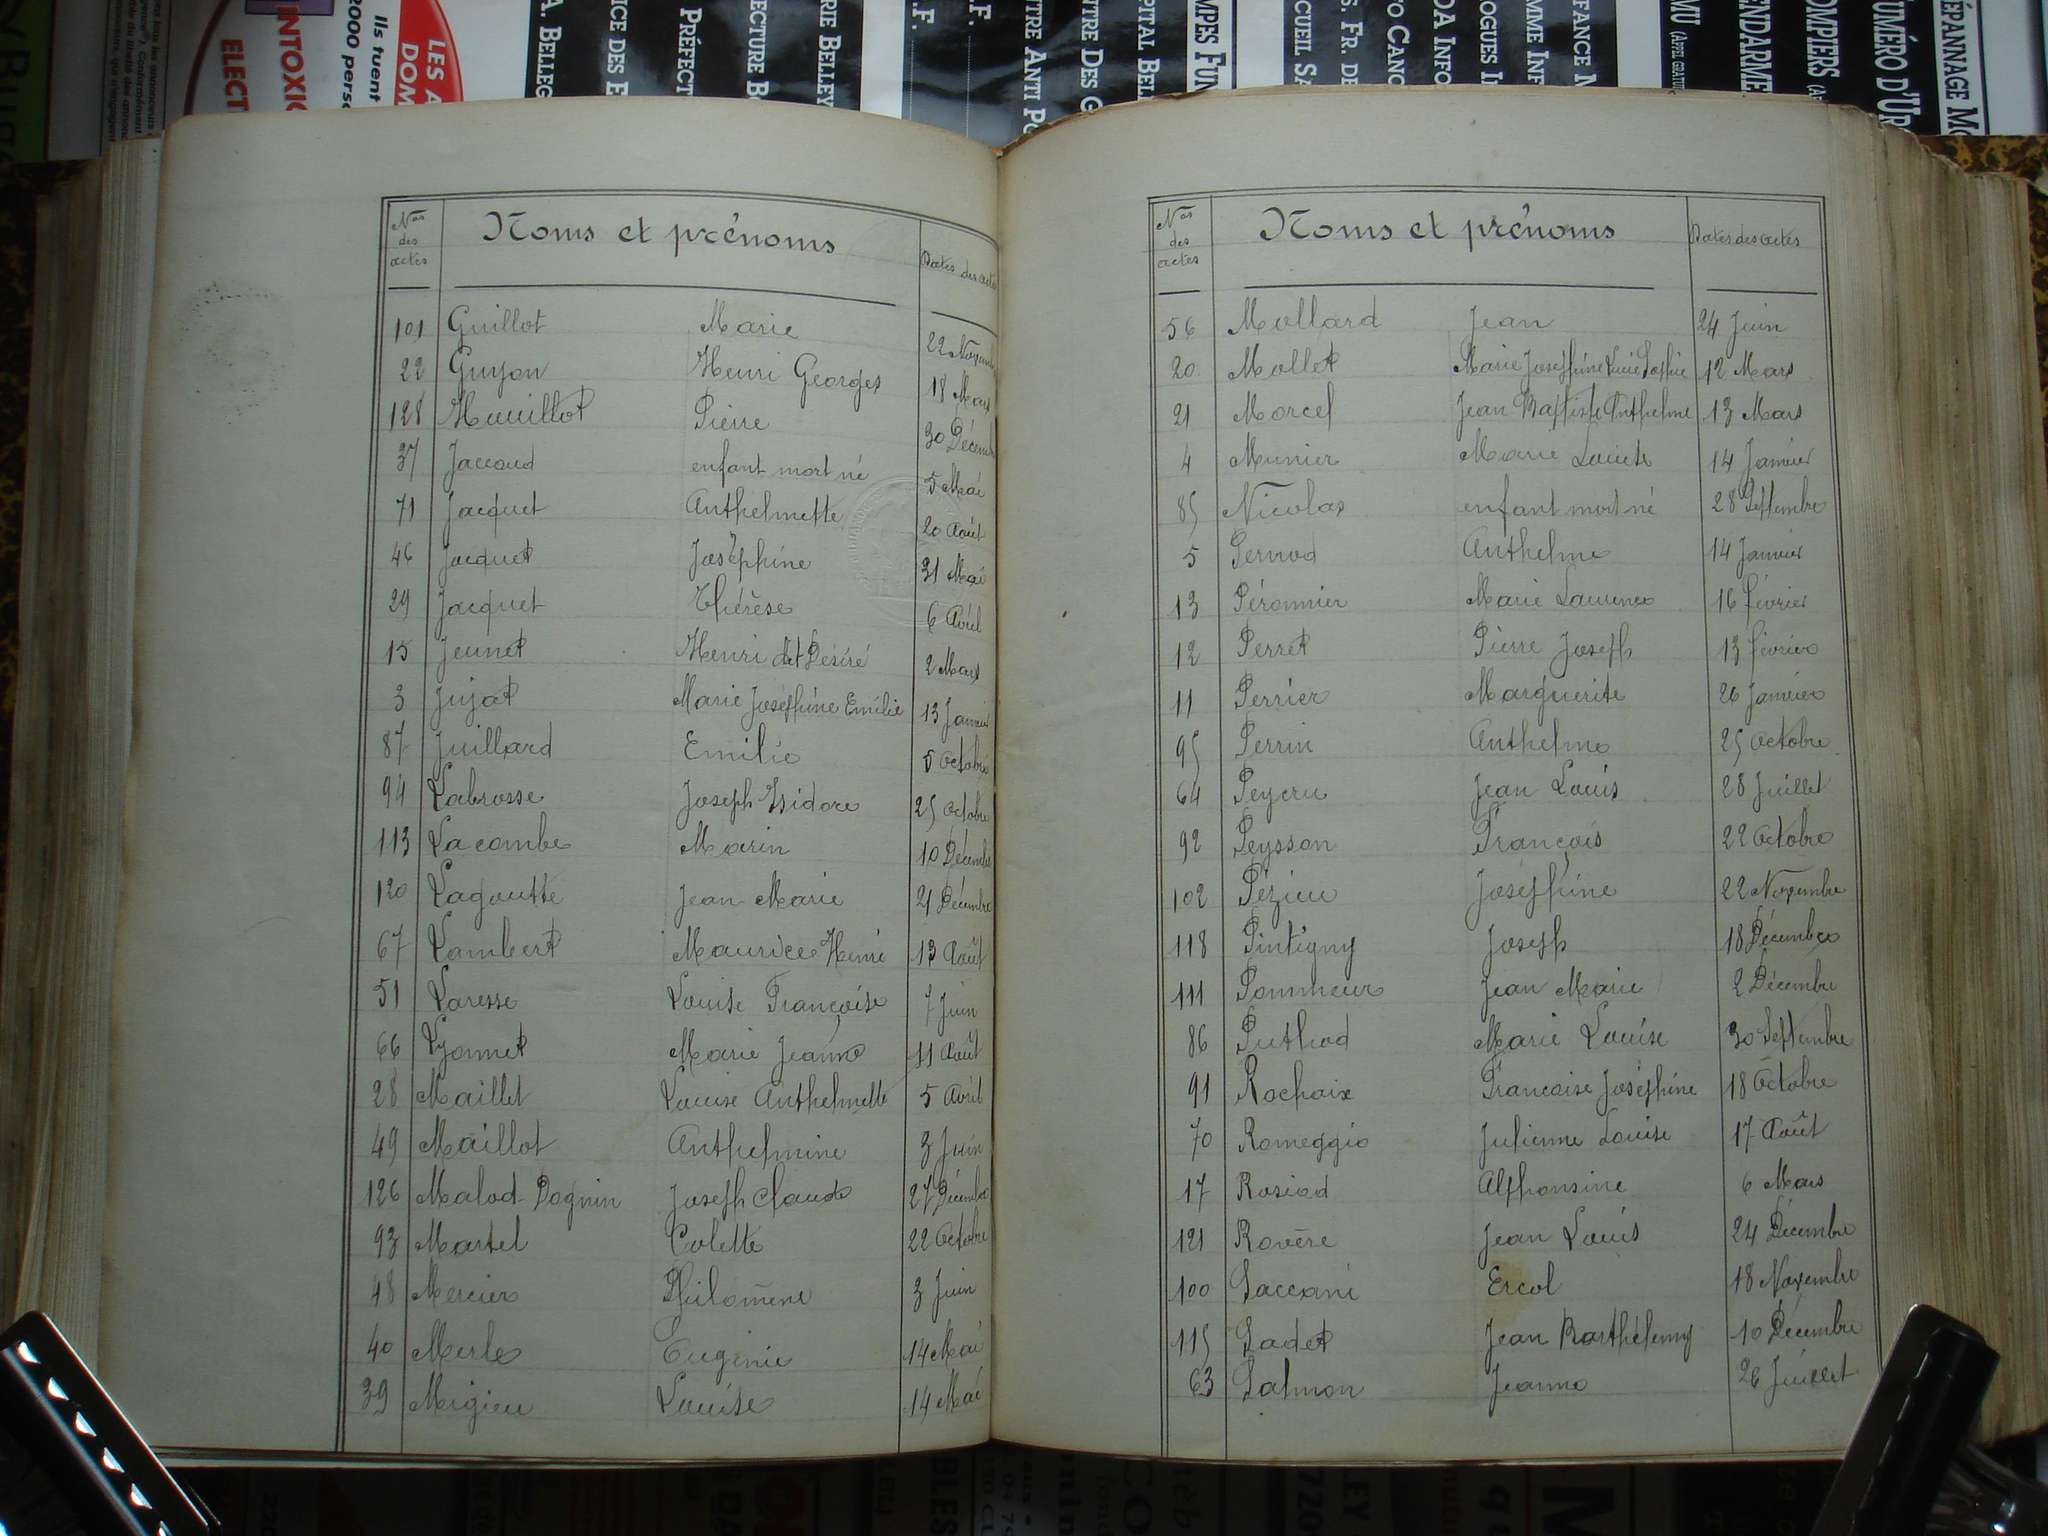 Nos des actes Noms et prénoms Dates des actes
101 Guillot Marie 22 Novembre
22 Guyon Henri Georges 18 Mars
128 Huillot Pierre 30 Décembre
37 Jaccoud enfant mort né 5 Mai
71 Jacquet Anthelmette 20 Août
46 Jacquet Joséphine 31 Mai
29 Jacquet Thérèse 6 Avril
15 Jeunet Henri dit Désiré 2 Mars
3 Jujat Marie Joséphine Emilie 13 Janvier
87 Juillard Emilie 5 Octobre
94 Labrosse Joseph Isidore 25 Octobre
113 Lacombe Marin 10 Décembre
120 Lagoutte Jean Marie 21 Décembre
67 Lambert Maurice Henri 13 Août
51 Laresse Louise Françoise 7 Juin
66 Lyonnet Marie Jeanne 11 Août
28 Maillet Louise Anthelmette 5 Avril
49 Maillot Anthelmine 3 Juin
126 Malod-Dognin Joseph Claude 27 Décembre
93 Martel Colette 22 Octobre
48 Mercier Philomène 3 Juin
40 Merle Eugénie 14 Mai
39 Migieu Louise 14 Mai
Nos des actes Noms et prénoms Dates des actes
56 Mollard Jean 24 Juin
20 Mollet Marie Joséphine Lucie Sophie 12 Mars
21 Morcel Jean Baptiste Anthelme 13 Mars
4 Munier Marie Louise 14 Janvier
85 Nicolas enfant mort né 28 Septembre
5 Pernod Anthelme 14 Janvier
13 Péronnier Marie Laurence 16 février
12 Perret Pierre Joseph 13 février
11 Perrier Marguerite 26 Janvier
95 Perrin Anthelme 25 Octobre
64 Peycru Jean Louis 28 Juillet
92 Peysson François 22 Octobre
102 Pézieu Joséphine 22 Novembre
118 Pintigny Joseph 18 Décembre
111 Pommeur Jean Marie 2 Décembre
86 Puthod Marie Louise 30 Septembre
91 Rochaix Françoise Joséphine 18 Octobre
70 Romeggio Julienne Louise 17 Août
17 Rosiod Alphonsine 6 Mars
121 Rovère Jean Louis 24 Décembre
100 Saccani Ercol 18 Novembre
115 Sadet Jean Barthélemy 10 Décembre
63 Salmon Jeanne 26 Juillet